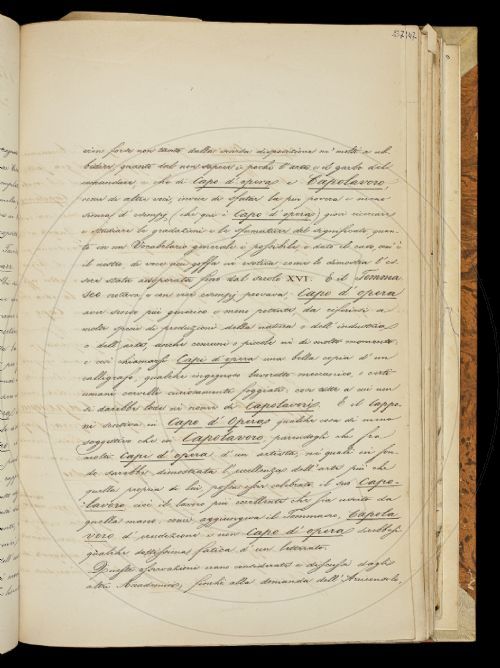 vien forse non tanto dalla scarsa disposizione ne' molti a ub-
bidire, quanto dal non sapere i pochi l'arte e il garbo del
comandare, e che di Capo d'opera e Capolavoro,
come di altre voci, invece di sfatar la più povera e meno
ricca d'esempj (che qui è Capo d'opera) giovi ricercare
e studiare le gradazioni e le sfumature del significato quan-
to in un Vocabolario generale è possibile, e dato il caso, ch'è
il nostro di voce non goffa in esotica come lo dimostra l'es-
sere stata adoperata fino dal secolo XVI. E il Tomma
seo notava, e con veri esempj provava Capo d'opera
aver senso più generico e meno potente da riferirsi a
molte specie di produzioni della natura e dell'industria
e dell'arte, anche comuni e piccole nè di molto momento,
e così chiamarsi Capi d'opera una bella copia d'un
calligrafo, qualche ingegnoso lavoretto meccanico, e certi
umani cervelli curiosamente foggiati, cose tutte a cui non
si darebbe lode nè nome di Capolavori. E il Cappo-
ni sentiva in Capo d'Opera qualche cosa di meno
soggettivo che in Capolavoro, parendogli che fra
molti Capi d'opera d'un artista, ne' quali in fon-
do sarebbe dimostrata l'eccellenza dell'arte più che
quella propria di lui, possa esser celebrato il suo Capo-
lavoro cioè il lavoro più eccellente che sia uscito da
quella mano, come, aggiungeva il Tommaseo, Capola
voro d'erudizione e non Capo d'opera direbbesi
qualche dottissima fatica d'un letterato.
Queste osservazioni erano considerate e discusse dagli
altri Accademici, finchè alla domanda dell'Arciconsolo